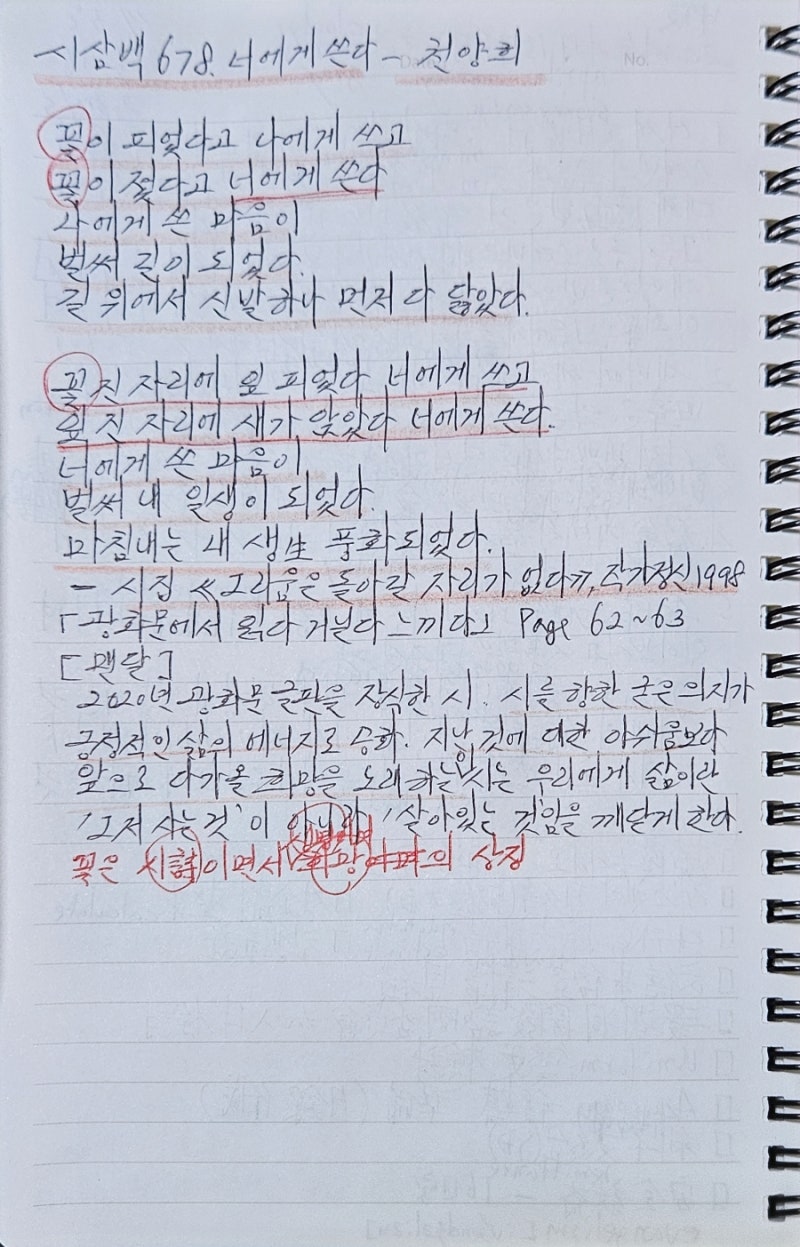 시삼백 678. 너에게 쓴다 - 천양희
꽃이 피었다고 너에게 쓰고
꽃이 졌다고 너에게 쓴다
너에게 쓴 마음이
벌써 길이 되었다.
길 위에서 신발 하나 먼저 다 닳았다.
꽃 진 자리에 잎 피었다 너에게 쓰고
잎 진 자리에 새가 앉았다 너에게 쓴다.
너에게 쓴 마음이
벌써 내 일생이 되었다.
마침내는 내 생生 풍화되었다.
- 시집 《그리움은 돌아갈 자리가 없다》, 작가정신 1998
「광화문에서 읽다 거닐다 느끼다」 Page 62~63
[맨달]
2020년 광화문 글판을 장식한 시. 시를 향한 굳은 의지가
긍정적인 삶의 에너지로 승화. 지난 것에 대한 아쉬움보다
앞으로 다가올 희망을 노래하는 시는 우리에게 삶이란
'그저 사는 것'이 아니라 '살아있는 것'임을 깨닫게 한다.
꽃은 시詩이면서 희망 의 상징